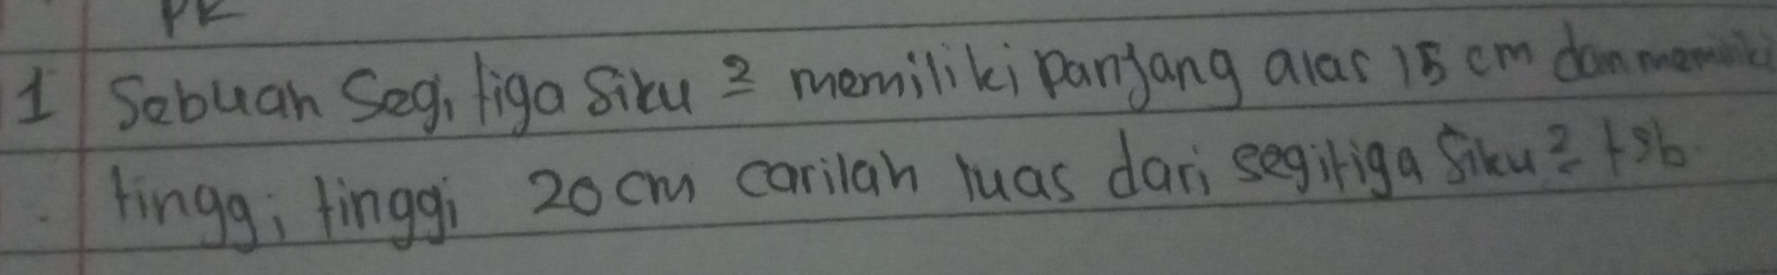 PK
1 Sebuah Segitiga Siku 2 memiliki panjang alas 15 cm dan memiliki
tinggi tinggi 20 cm carilah luas dari segitiga Siku 2 tsb